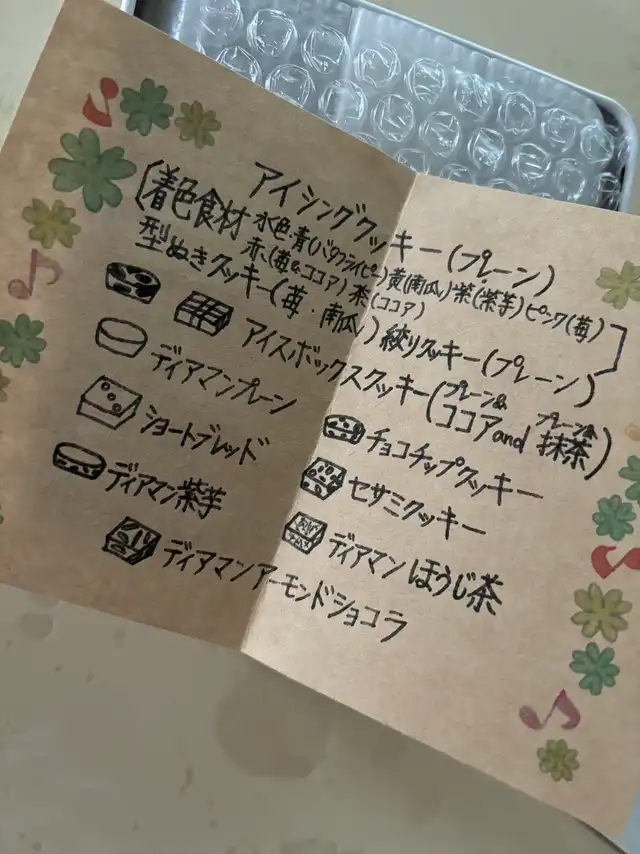 アイシングクッキー(プレーン)
(着色食材 水色・青(バタフライピー)黄(南瓜)紫(紫芋)ピンク(苺)
赤(苺&ココア)茶(ココア)]
型ぬきクッキー(苺・南瓜)絞りクッキー(プレーン)
アイスボックスクッキー(プレーン&ココアand プレーン&抹茶)
ディアマンプレーン
チョコチップクッキー
ショートブレッド
セサミクッキー
ディアマン紫芋
ディアマンほうじ茶
ディアマンアーモンドショコラ